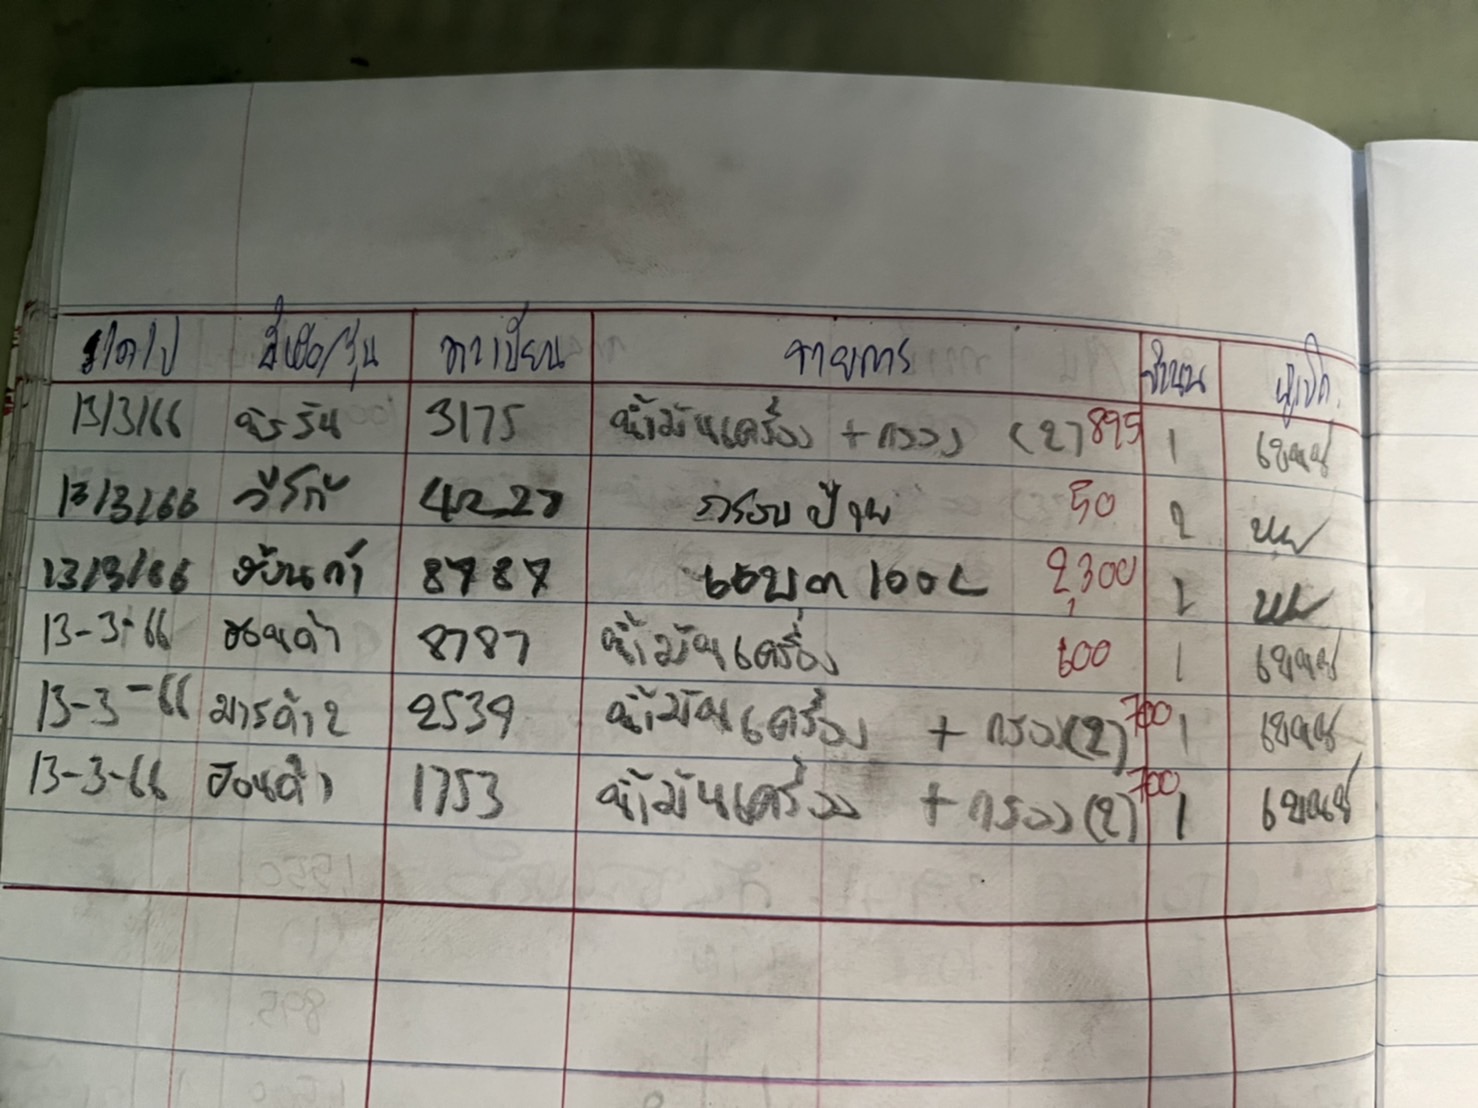 ว/ด/ป ยี่ห้อ/รุ่น ทะเบียน รายการ จำนวน ผู้เบิก
13/3/66 3175 น้ำมันเครื่อง + กรอง (2) 895 1
13/3/66 วีโก้ 4227 50 2
13/3/66 ฮอนด้า 8787 แบต 100L 2,300 1
13-3-66 ฮอนด้า 8787 น้ำมันเครื่อง 600 1
13-3-66 มาสด้า2 2539 น้ำมันเครื่อง + กรอง (2) 700 1
13-3-66 ฮอนด้า 1753 น้ำมันเครื่อง + กรอง (2) 700 1